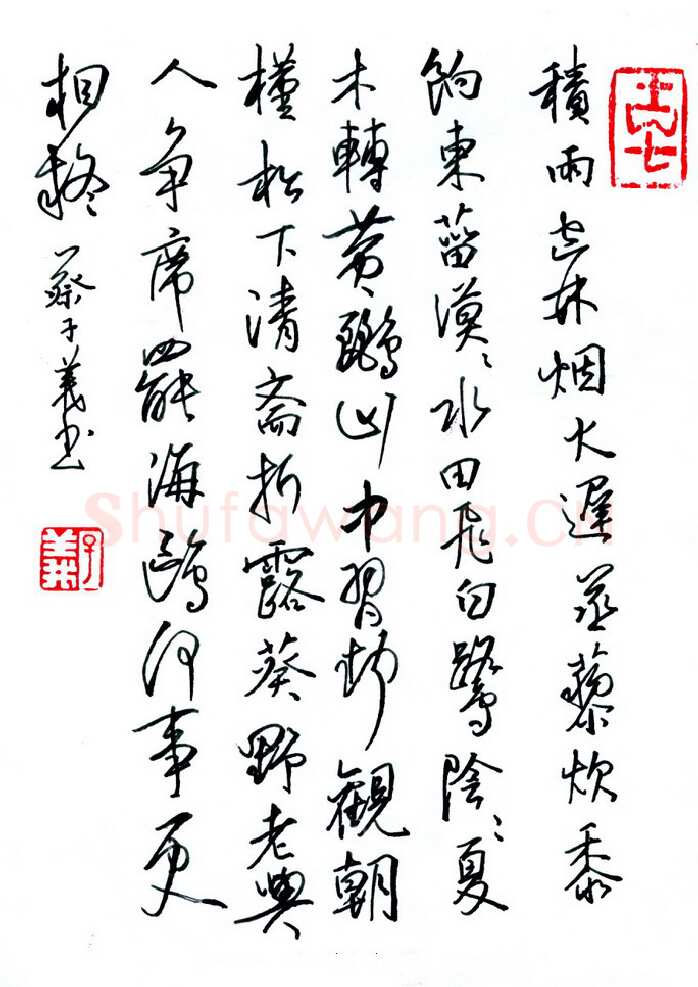 積雨空林烟火遲蒸藜炊黍
餉東菑漠〻水田飛白鷺陰〻夏
木轉黄鸝山中習静觀朝
槿松下清斋折露葵野老與
人争席罷海鷗何事更
相疑 蔡子義书
子義
Shufawang.cn